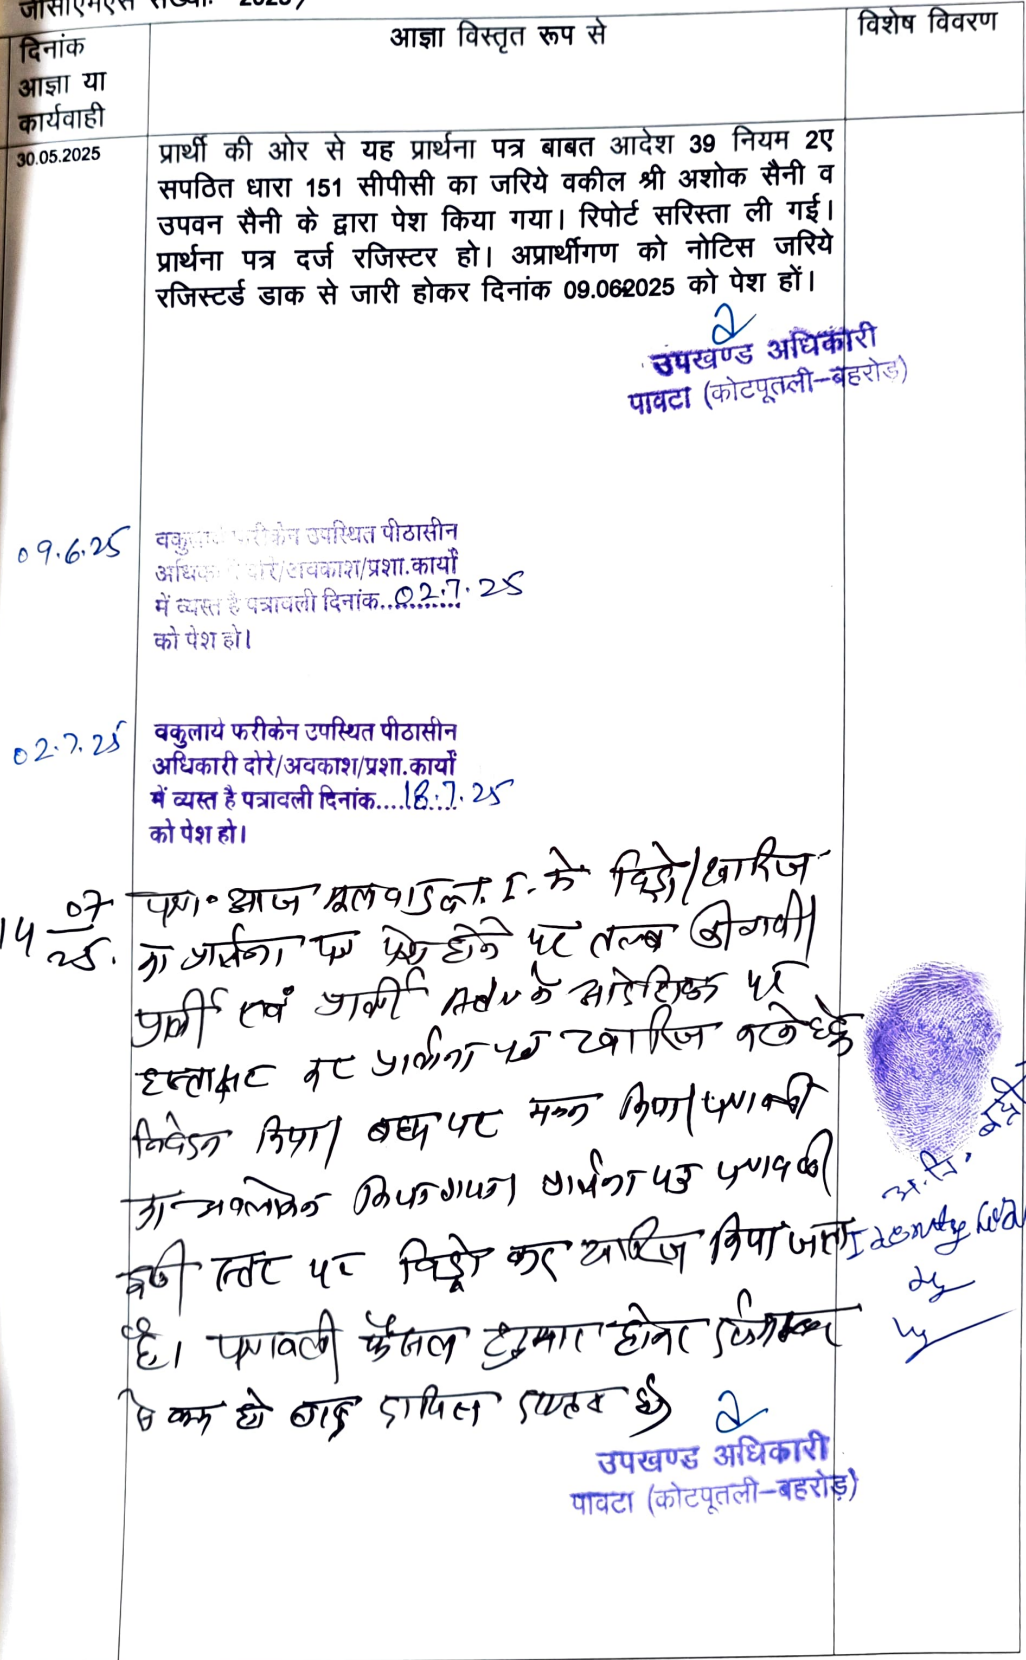 जीसीएमएस संख्याः 2025)
दिनांक
आज्ञा या
कार्यवाही
आज्ञा विस्तृत रूप से
विशेष विवरण
30.05.2025
प्रार्थी की ओर से यह प्रार्थना पत्र बाबत आदेश 39 नियम 2ए
सपठित धारा 151 सीपीसी का जरिये वकील श्री अशोक सैनी व
उपवन सैनी के द्वारा पेश किया गया। रिपोर्ट सरिस्ता ली गई।
प्रार्थना पत्र दर्ज रजिस्टर हो। अप्रार्थीगण को नोटिस जरिये
रजिस्टर्ड डाक से जारी होकर दिनांक 09.062025 को पेश हों।
उपखण्ड अधिकारी
पावटा (कोटपूतली-बहरोड़)
09.6.25
वकुलाये फरीकेन उपस्थित पीठासीन
अधिकारी दोरे/अवकाश/प्रशा.कार्यों
में व्यस्त है पत्रावली दिनांक..02.7.25
को पेश हो।
02.7.25
वकुलाये फरीकेन उपस्थित पीठासीन
अधिकारी दोरे/अवकाश/प्रशा.कार्यों
में व्यस्त है पत्रावली दिनांक....18.7.25
को पेश हो।
14 07 25.
पत्रा॰ आज मूलवाद में विड्रो/खारिज
का प्रार्थना पत्र पेश होने पर तलब की गयी।
प्रार्थी एवं प्रार्थी Adv के आदेशिका पर
हस्ताक्षर कर प्रार्थना पत्र खारिज करने हेतु
निवेदन किया। बहस पर मनन किया। पत्रावली
का अवलोकन किया गया। प्रार्थना पत्र पत्रावली
इसी स्तर पर विड्रो कर खारिज किया जाता
है। पत्रावली फैसल शुमार होकर
से कम हो बाद दाखिल दफ्तर हो
उपखण्ड अधिकारी
पावटा (कोटपूतली-बहरोड़)
अ.नि. बद्री
Identify
by